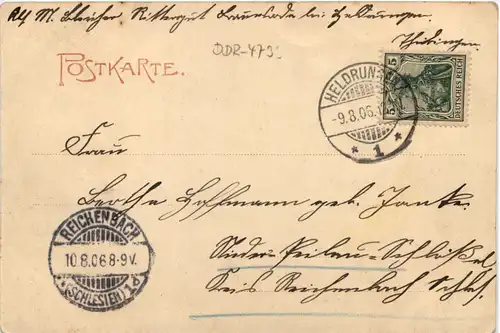 Abs M. Bleicher Rittergut Braunsroda bei Heldrungen
Thüringen
DDR-479
POSTKARTE.
HELDRUNGEN
-9.8.06.
* 1 *
5 5
DEUTSCHES REICH
Frau
Bertha Hoffmann geb. Janke
Nieder-Peilau-Schlößel
Kreis Reichenbach Schles.
REICHENBACH
10.8.06 8-9V.
(SCHLESIEN) 1